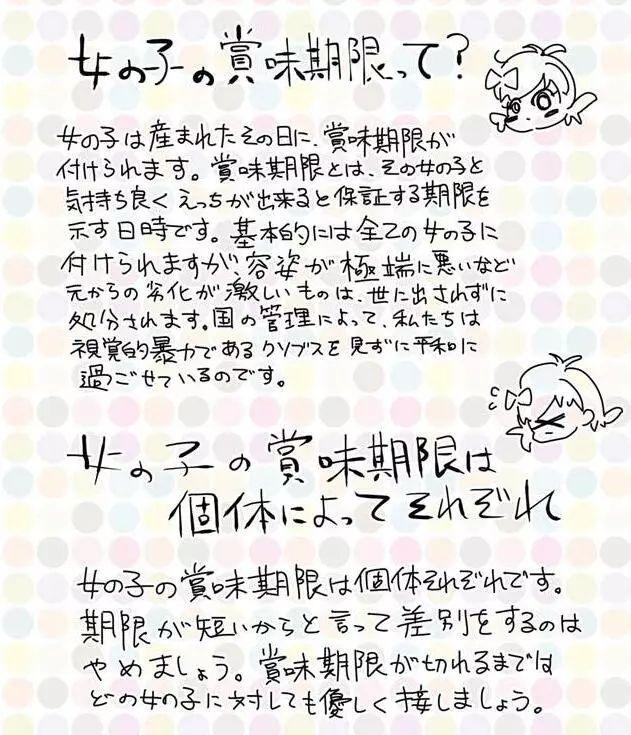 女の子の賞味期限って?
女の子は産まれたその日に、賞味期限が
付けられます。賞味期限とは、その女の子と
気持ち良くえっちが出来ると保証する期限を
示す日時です。基本的には全ての女の子に
付けられますが、容姿が極端に悪いなど
元からの劣化が激しいものは、世に出されずに
処分されます。国の管理によって、私たちは
視覚的暴力であるクソブスを見ずに平和に
過ごせているのです。
女の子の賞味期限は
個体によってそれぞれ
女の子の賞味期限は個体それぞれです。
期限が短いからと言って差別をするのは
やめましょう。賞味期限が切れるまでは
どの女の子に対しても優しく接しましょう。